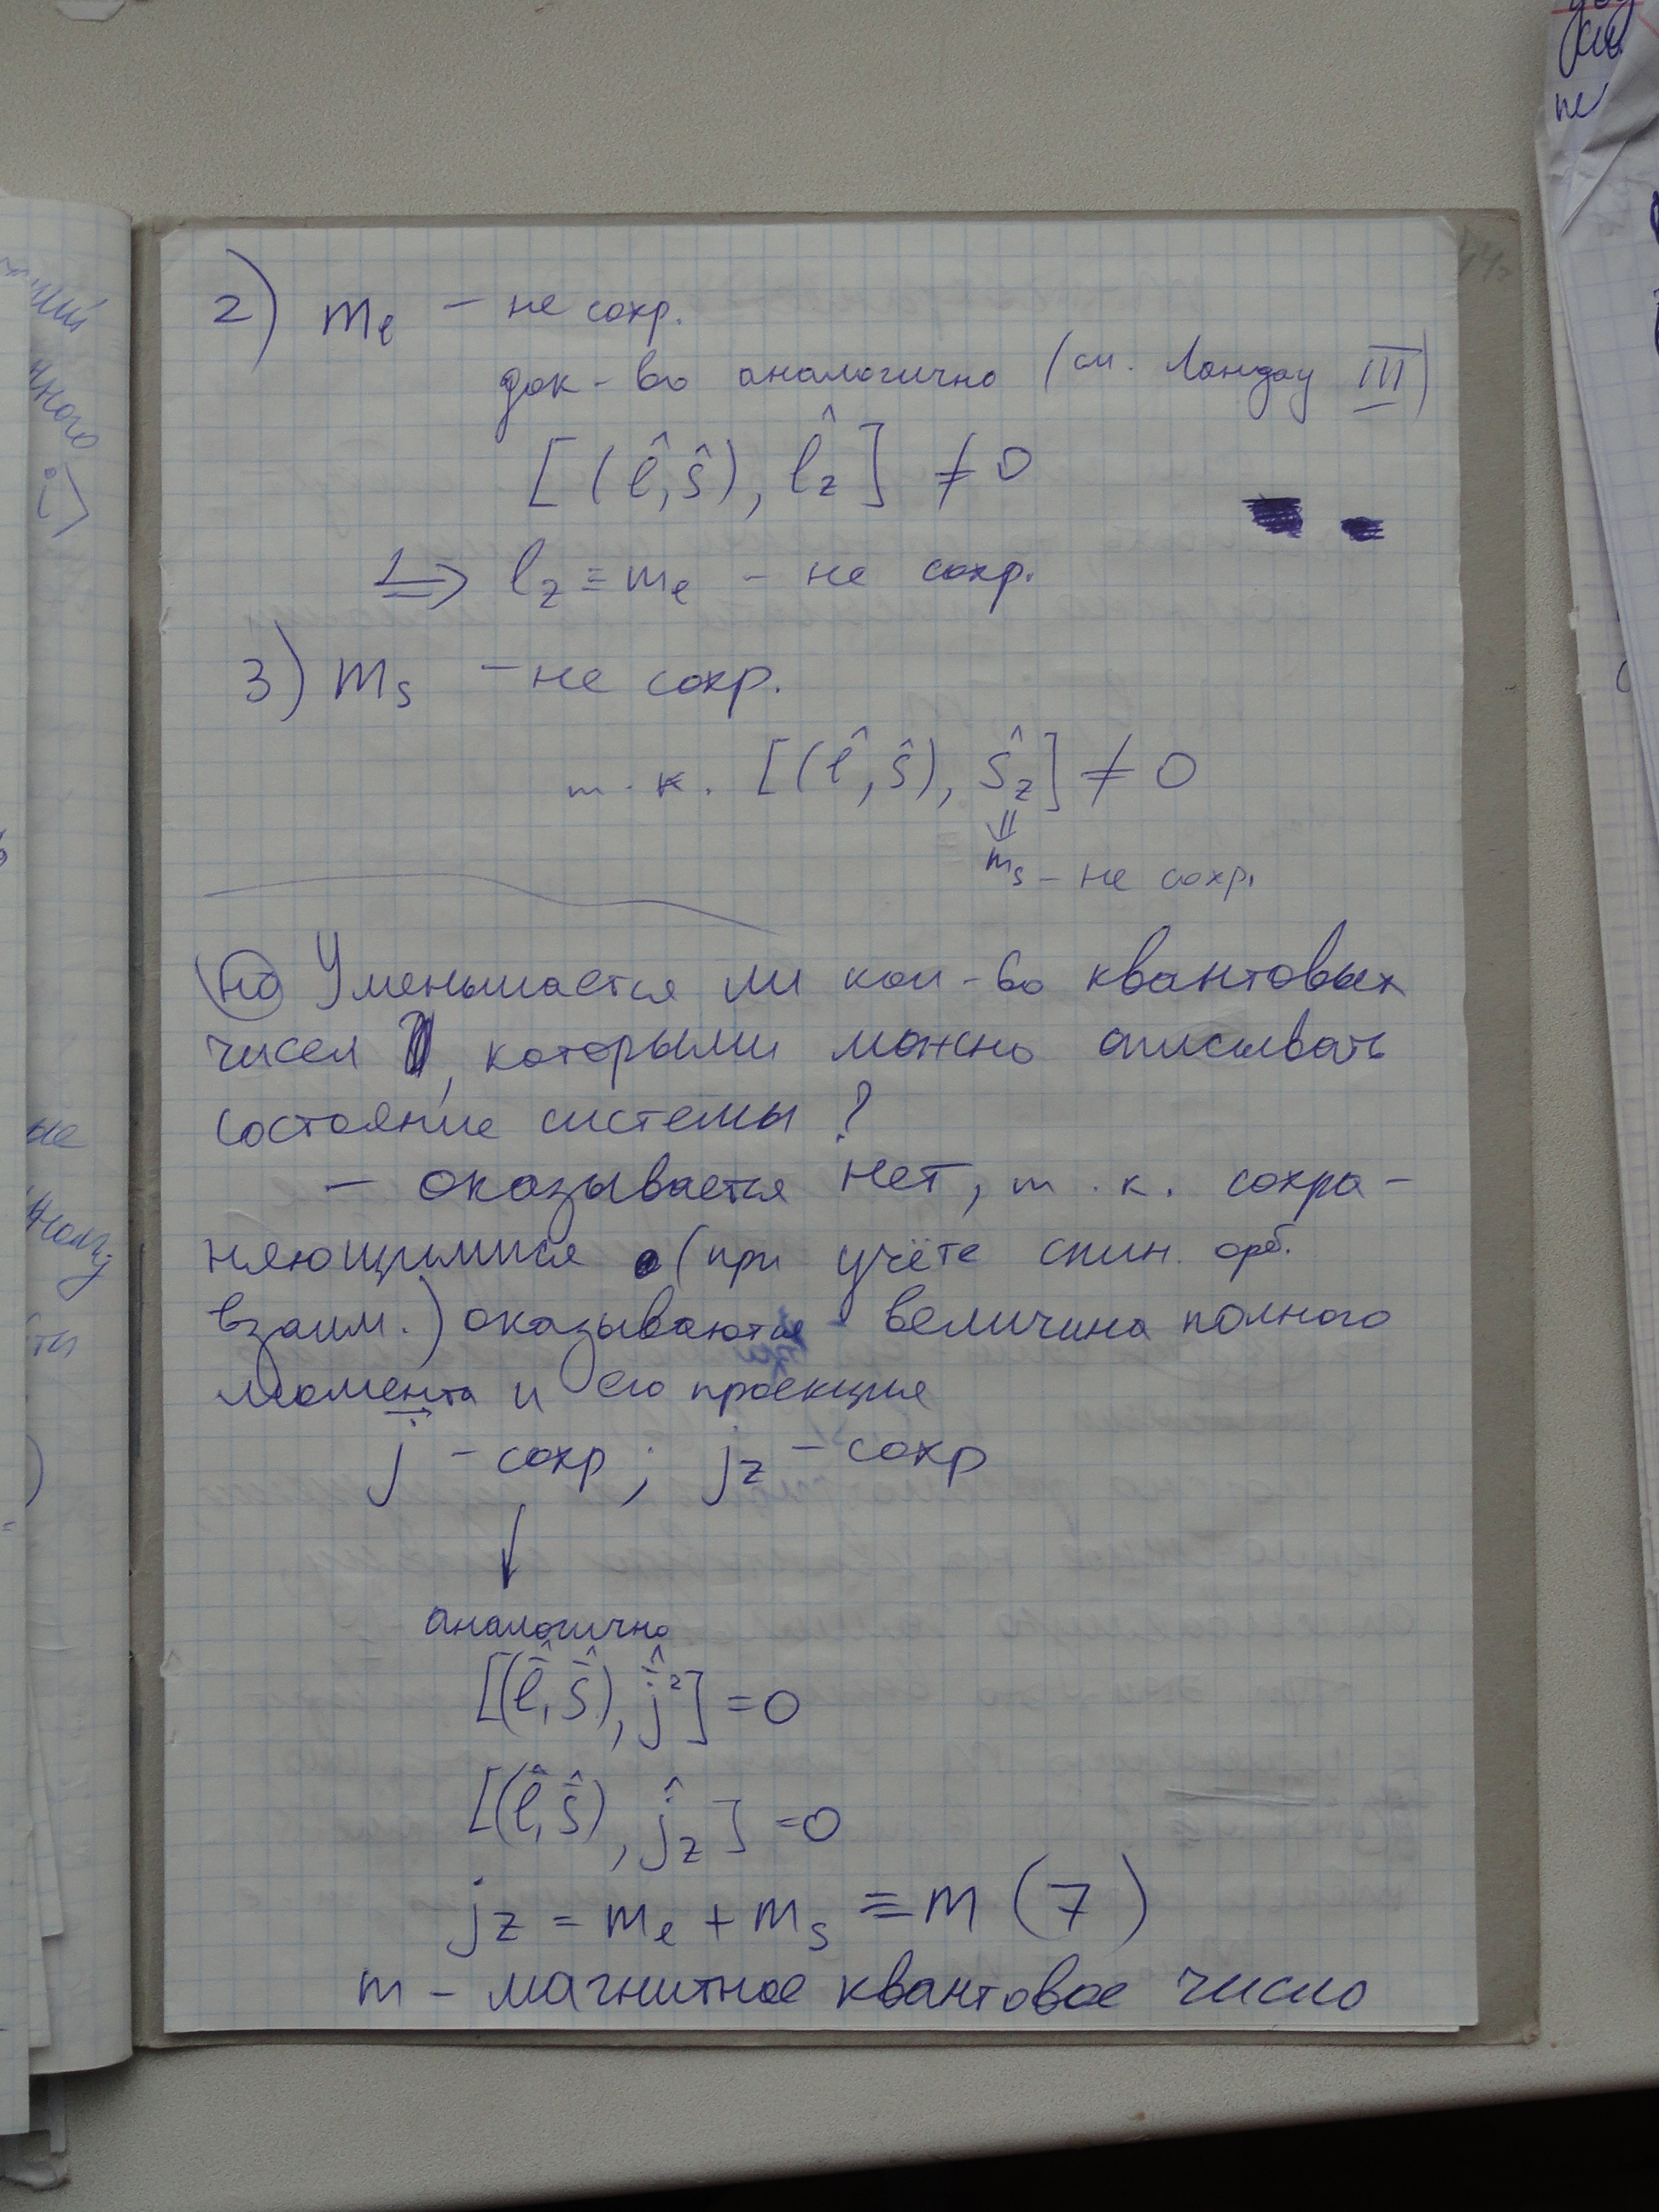 2) mₑ – не сохр.
док-во аналогично (см. Ландау III)
[(ℓ̂,ŝ), ℓ̂z] ≠ 0
⇒ ℓz ≡ mℓ – не сохр.
3) ms – не сохр.
т.к. [(ℓ̂,ŝ), ŝz] ≠ 0
⇓
ms – не сохр.
но Уменьшается ли кол-во квантовых
чисел, которыми можно описывать
состояние системы?
– оказывается нет, т.к. сохра-
няющимися (при учёте спин. орб.
взаим.) оказываются величина полного
момента и его проекция
j⃗ – сохр; jz – сохр
↓
аналогично
[(ℓ̂,ŝ), ĵ²] = 0
[(ℓ̂,ŝ), ĵz] = 0
jz = mℓ + ms ≡ m (7)
m – магнитное квантовое число